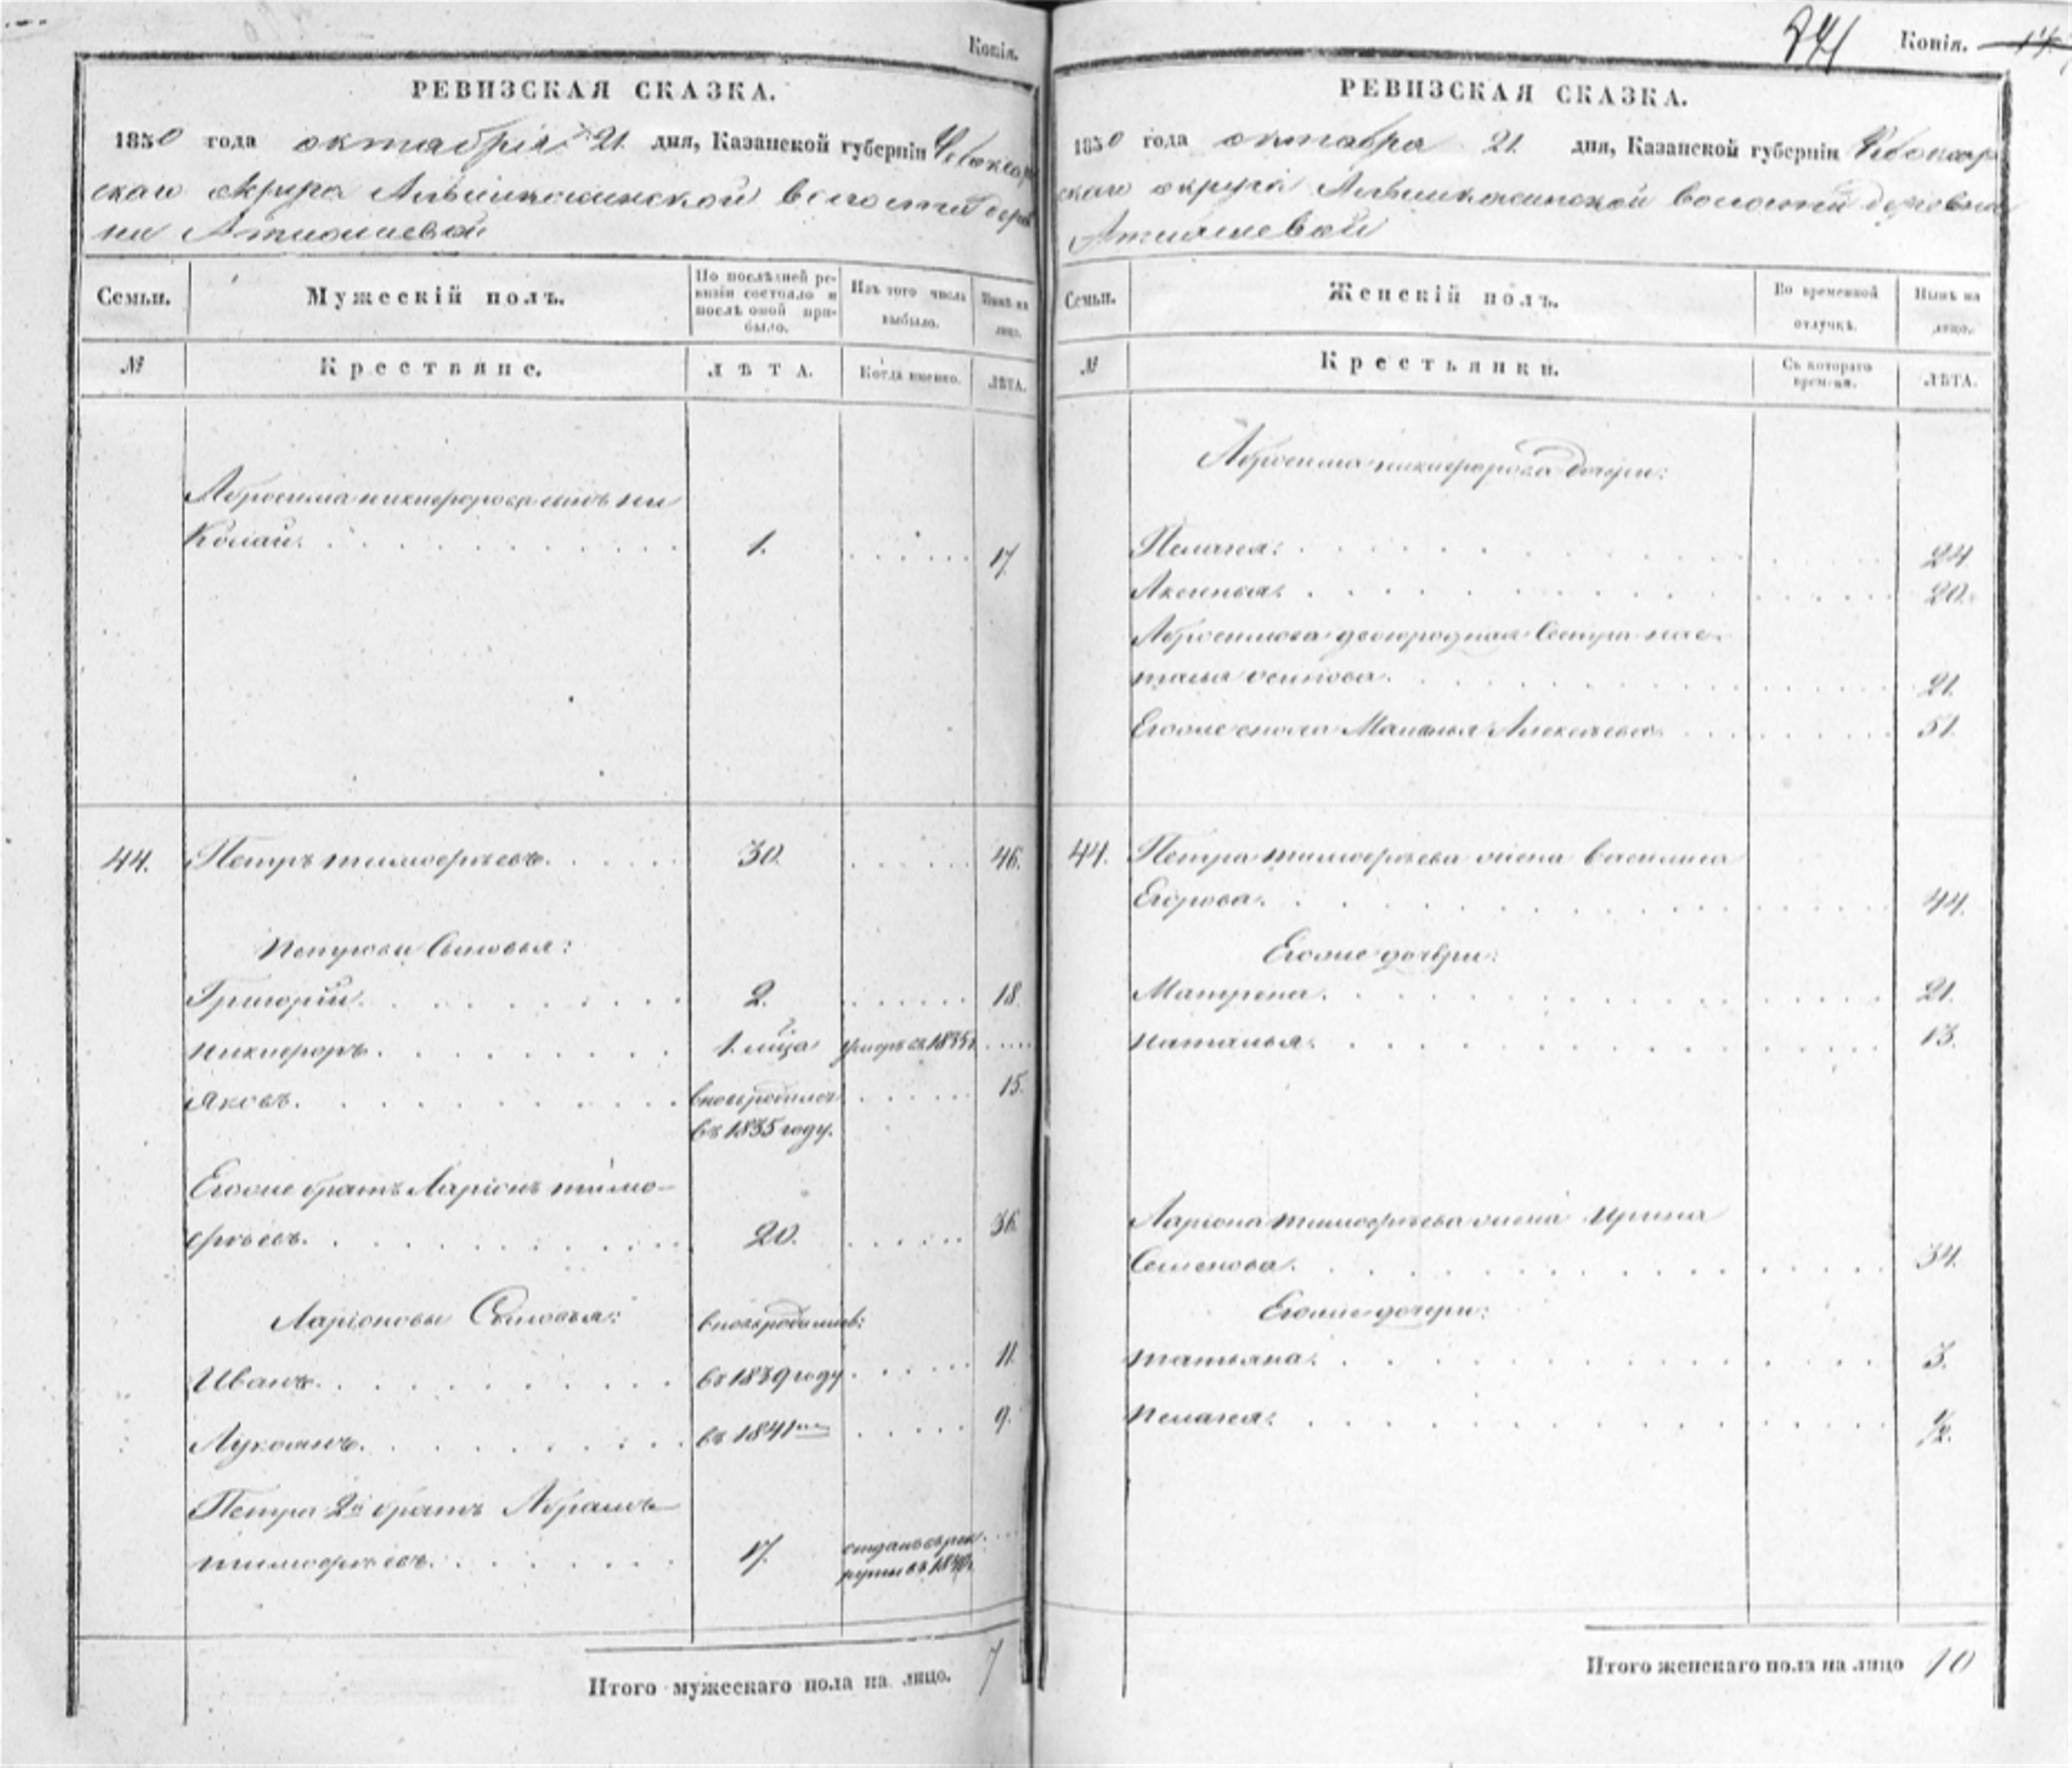 Копія.
РЕВИЗСКАЯ СКАЗКА.
1850 года октабрія 21. дня, Казанской губерніи Чебоксар
скаго округа Альшикасинской волости дерев
ни
Семьи.
Мужескій полъ.
По послѣдней ре-
визіи состояло и
послѣ оной при-
было.
Изъ того числа
выбыло.
Нынѣ на
лицо.
№
Крестьяне.
ЛѢТА.
Когда именно.
ЛѢТА.
Абросима никиѳорова сынъ ни
колай. 1. 17.
44. Петръ тимоѳѣевъ. 30. 46.
Петровы сыновья:
Григорій. 2. 18.
никиѳоръ. 1. мца умеръ въ 1835г.
яковъ. вновьродился 15.
въ 1835 году.
Егоже братъ Ларіонъ тимо-
ѳѣевъ. 20. 36.
Ларіоновы Сыновья: вновьродились:
Иванъ. въ 1839 году 11.
Лукоянъ. въ 1841 9.
Петра 2й братъ Абрамъ
тимоѳѣевъ. 17. отданъ въ рек
руты въ
Итого мужескаго пола на лицо. 7
241
Копія.
РЕВИЗСКАЯ СКАЗКА.
1850 года октабра 21. дня, Казанской губерніи Чебоксар
скаго округа Альшикасинской волости деревни
Семьи.
Женскій полъ.
Во временной
отлучкѣ.
Нынѣ на
лицо.
№
Крестьянки.
Съ котораго
времени.
ЛѢТА.
Абросима никиѳорова дочери:
Пелагея: 24.
Аксинья: 20.
Абросимова двоюродная сестра нас-
тасья осипова. 21.
Егоже сноха Алексѣева. 51.
44. Петра тимоѳѣева жена василиса
Егорова. 44.
Егоже дочѣри:
Матрена. 21.
наталья. 13.
Ларіона тимоѳѣева жена ирина
Семенова. 34.
Егоже дочери:
татьяна. 3.
пелагея: 1/2.
Итого женскаго пола на лицо 10